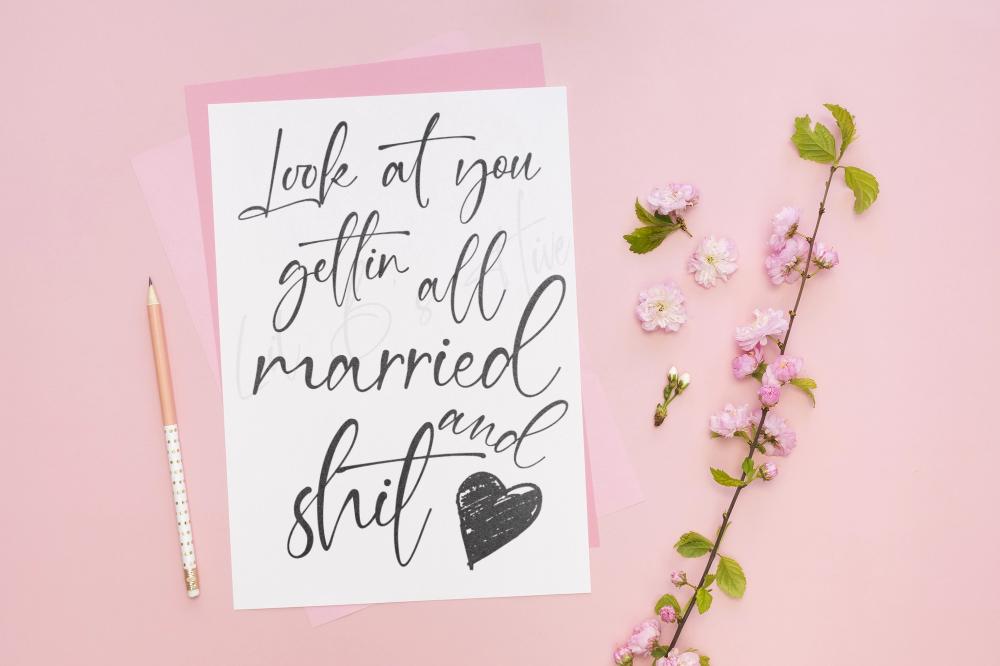 Look at you
gettin all
married
and
shit